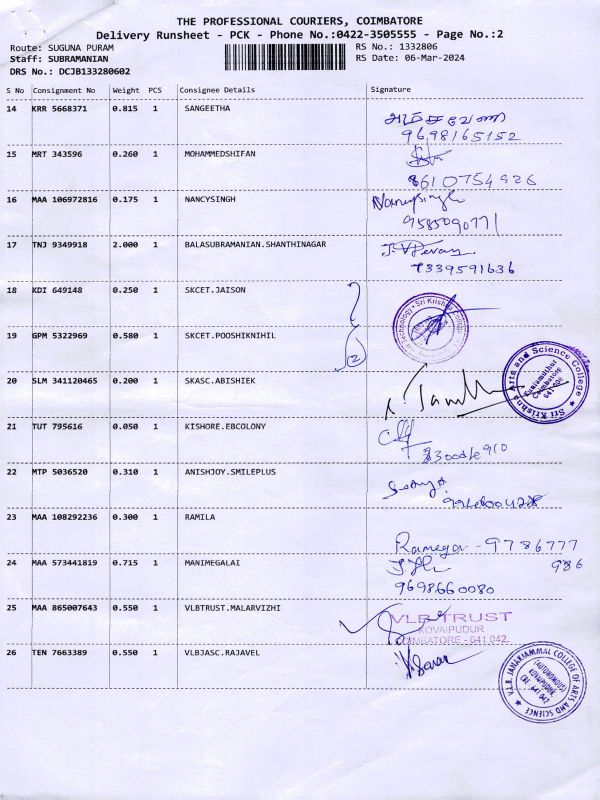 THE PROFESSIONAL COURIERS, COIMBATORE
Delivery Runsheet - PCK - Phone No.:0422-3505555 - Page No.:2
Route: SUGUNA PURAM
Staff: SUBRAMANIAN
DRS No.: DCJB133280602
RS No.: 1332806
RS Date: 06-Mar-2024
S No Consignment No Weight PCS Consignee Details Signature
14 KRR 5668371 0.815 1 SANGEETHA
9698165152
15 MRT 343596 0.260 1 MOHAMMEDSHIFAN
8610754926
16 MAA 106972816 0.175 1 NANCYSINGH Nancysingh
9585090771
17 TNJ 9349918 2.000 1 BALASUBRAMANIAN.SHANTHINAGAR
7339591636
18 KDI 649148 0.250 1 SKCET.JAISON
19 GPM 5322969 0.580 1 SKCET.POOSHIKNIHIL
2
20 SLM 341120465 0.200 1 SKASC.ABISHIEK
Sri Krishna Arts and Science College
Kuniamuthur
Coimbatore
641 008
21 TUT 795616 0.050 1 KISHORE.EBCOLONY
22 MTP 5036520 0.310 1 ANISHJOY.SMILEPLUS
23 MAA 108292236 0.300 1 RAMILA
- 9786777
986
24 MAA 573441819 0.715 1 MANIMEGALAI
9698660080
25 MAA 865007643 0.550 1 VLBTRUST.MALARVIZHI
VLB TRUST
KOVAIPUDUR
COIMBATORE - 641 042.
26 TEN 7663389 0.550 1 VLBJASC.RAJAVEL
V.L.B. JANAKIAMMAL COLLEGE OF ARTS AND SCIENCE
(AUTONOMOUS)
KOVAIPUDUR
CBE - 641 042